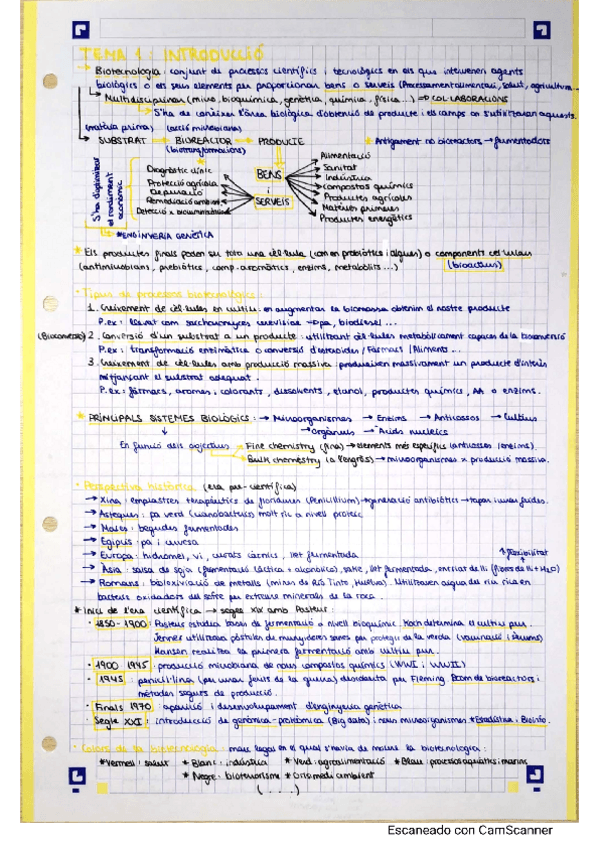 TEMA 1: INTRODUCCIÓ
Biotecnologia: conjunt de processos científics i tecnològics en els que intervenen agents
biològics o els seus elements per proporcionar béns o serveis (Processament aliments, salut, agricultura...
Multidisciplinar (micro, bioquímica, genètica, química, física...) → COL·LABORACIONS
S'ha de conèixer l'àrea biològica d'obtenció de producte i els camps on s'utilitzaran aquests.
(matèria prima) (acció microbiana)
SUBSTRAT → BIOREACTOR → PRODUCTE * Antigament no bioreactors → fermentadors
(biotransformacions)
S'ha d'optimitzar el rendiment econòmic
Diagnòstic clínic
Protecció agrícola
Depuració
Remediació ambient
Detecció x biocontaminants
BENS
i
SERVEIS
Alimentació
Sanitat
Indústria
Compostos químics
Productes agrícoles
Matèries primeres
Productes energètics
* ENGINYERIA GENÈTICA
* Els productes finals poden ser tota una cèl·lula (com en probiòtics i algues) o components cel·lulars
(antimicrobians, prebiòtics, comp. aromàtics, enzims, metabòlits...) (bioactius)
· Tipus de processos biotecnològics:
1. Creixement de cèl·lules en cultiu: en augmentar la biomassa obtenim el nostre producte
P.ex: llevat com saccharomyces cerevisiae → pa, biodièsel...
2. Conversió d'un substrat a un producte: utilitzant cèl·lules metabòlicament capaces de la bioconversió
P.ex: transformació enzimàtica o conversió d'esteroides / Fàrmacs / Aliments...
3. Creixement de cèl·lules amb producció massiva: produeixen massivament un producte d'interès
mitjançant el substrat adequat.
P.ex: fàrmacs, aromes, colorants, dissolvents, etanol, productes químics, AA o enzims.
* PRINCIPALS SISTEMES BIOLÒGICS: → Microorganismes → Enzims → Anticossos → Cultius
→ Orgànuls → Àcids nucleics
En funció dels objectius
Fine chemistry (fina) → elements més específics (anticossos / enzims).
Bulk chemestry (a l'engròs) → microorganismes x producció massiva.
· Perspectiva històrica (era pre-científica)
→ Xina: emplastres terapèutics de floridures (Penicillium) → generació antibiòtics → tapar ferides.
→ Asteques: pa verd (cianobacteris) molt ric a nivell proteic
→ Maies: begudes fermentades
→ Egipcis: pa i cervesa
→ Europa: hidromel, vi, curats càrnics, llet fermentada
↑ flexibilitat
→ Àsia: salsa de soja (fermentació làctica + alcohòlica), sake, llet fermentada, enriat de lli (fibres de lli + H2O)
→ Romans: biolixiviació de metalls (mines de Río Tinto, Huelva). Utilitzaven aigua del riu rica en
bacteris oxidadors del sofre per extreure minerals de la roca.
* Inici de l'era científica → segle XIX amb Pasteur:
· 1850-1900: Pasteur estudia bases de fermentació a nivell bioquímic. Koch determina el cultiu pur.
Jenner utilitzava pústules de munyidores sanes per protegir de la verola (vacunació i sèrums)
Hansen realitza la primera fermentació amb cultiu pur.
· 1900 1945: producció microbiana de nous compostos químics (WWI i WWII)
· 1945: penicil·lina (per curar ferits de la guerra) descoberta per Fleming. Boom de bioreactors i
mètodes segurs de producció.
· Finals 1970: aparició i desenvolupament d'enginyeria genètica
· Segle XXI: introducció de genòmica-proteòmica (Big data) i nous microorganismes * Estadística i Bioinfo.
· Colors de la biotecnologia: marc legal en el qual s'havia de moure la biotecnologia:
* Vermell: salut * Blanc: indústria * Verd: agroalimentació * Blau: processos aquàtics i marins
* Negre: bioterrorisme * Gris: medi ambient
(...)
Escaneado con CamScanner